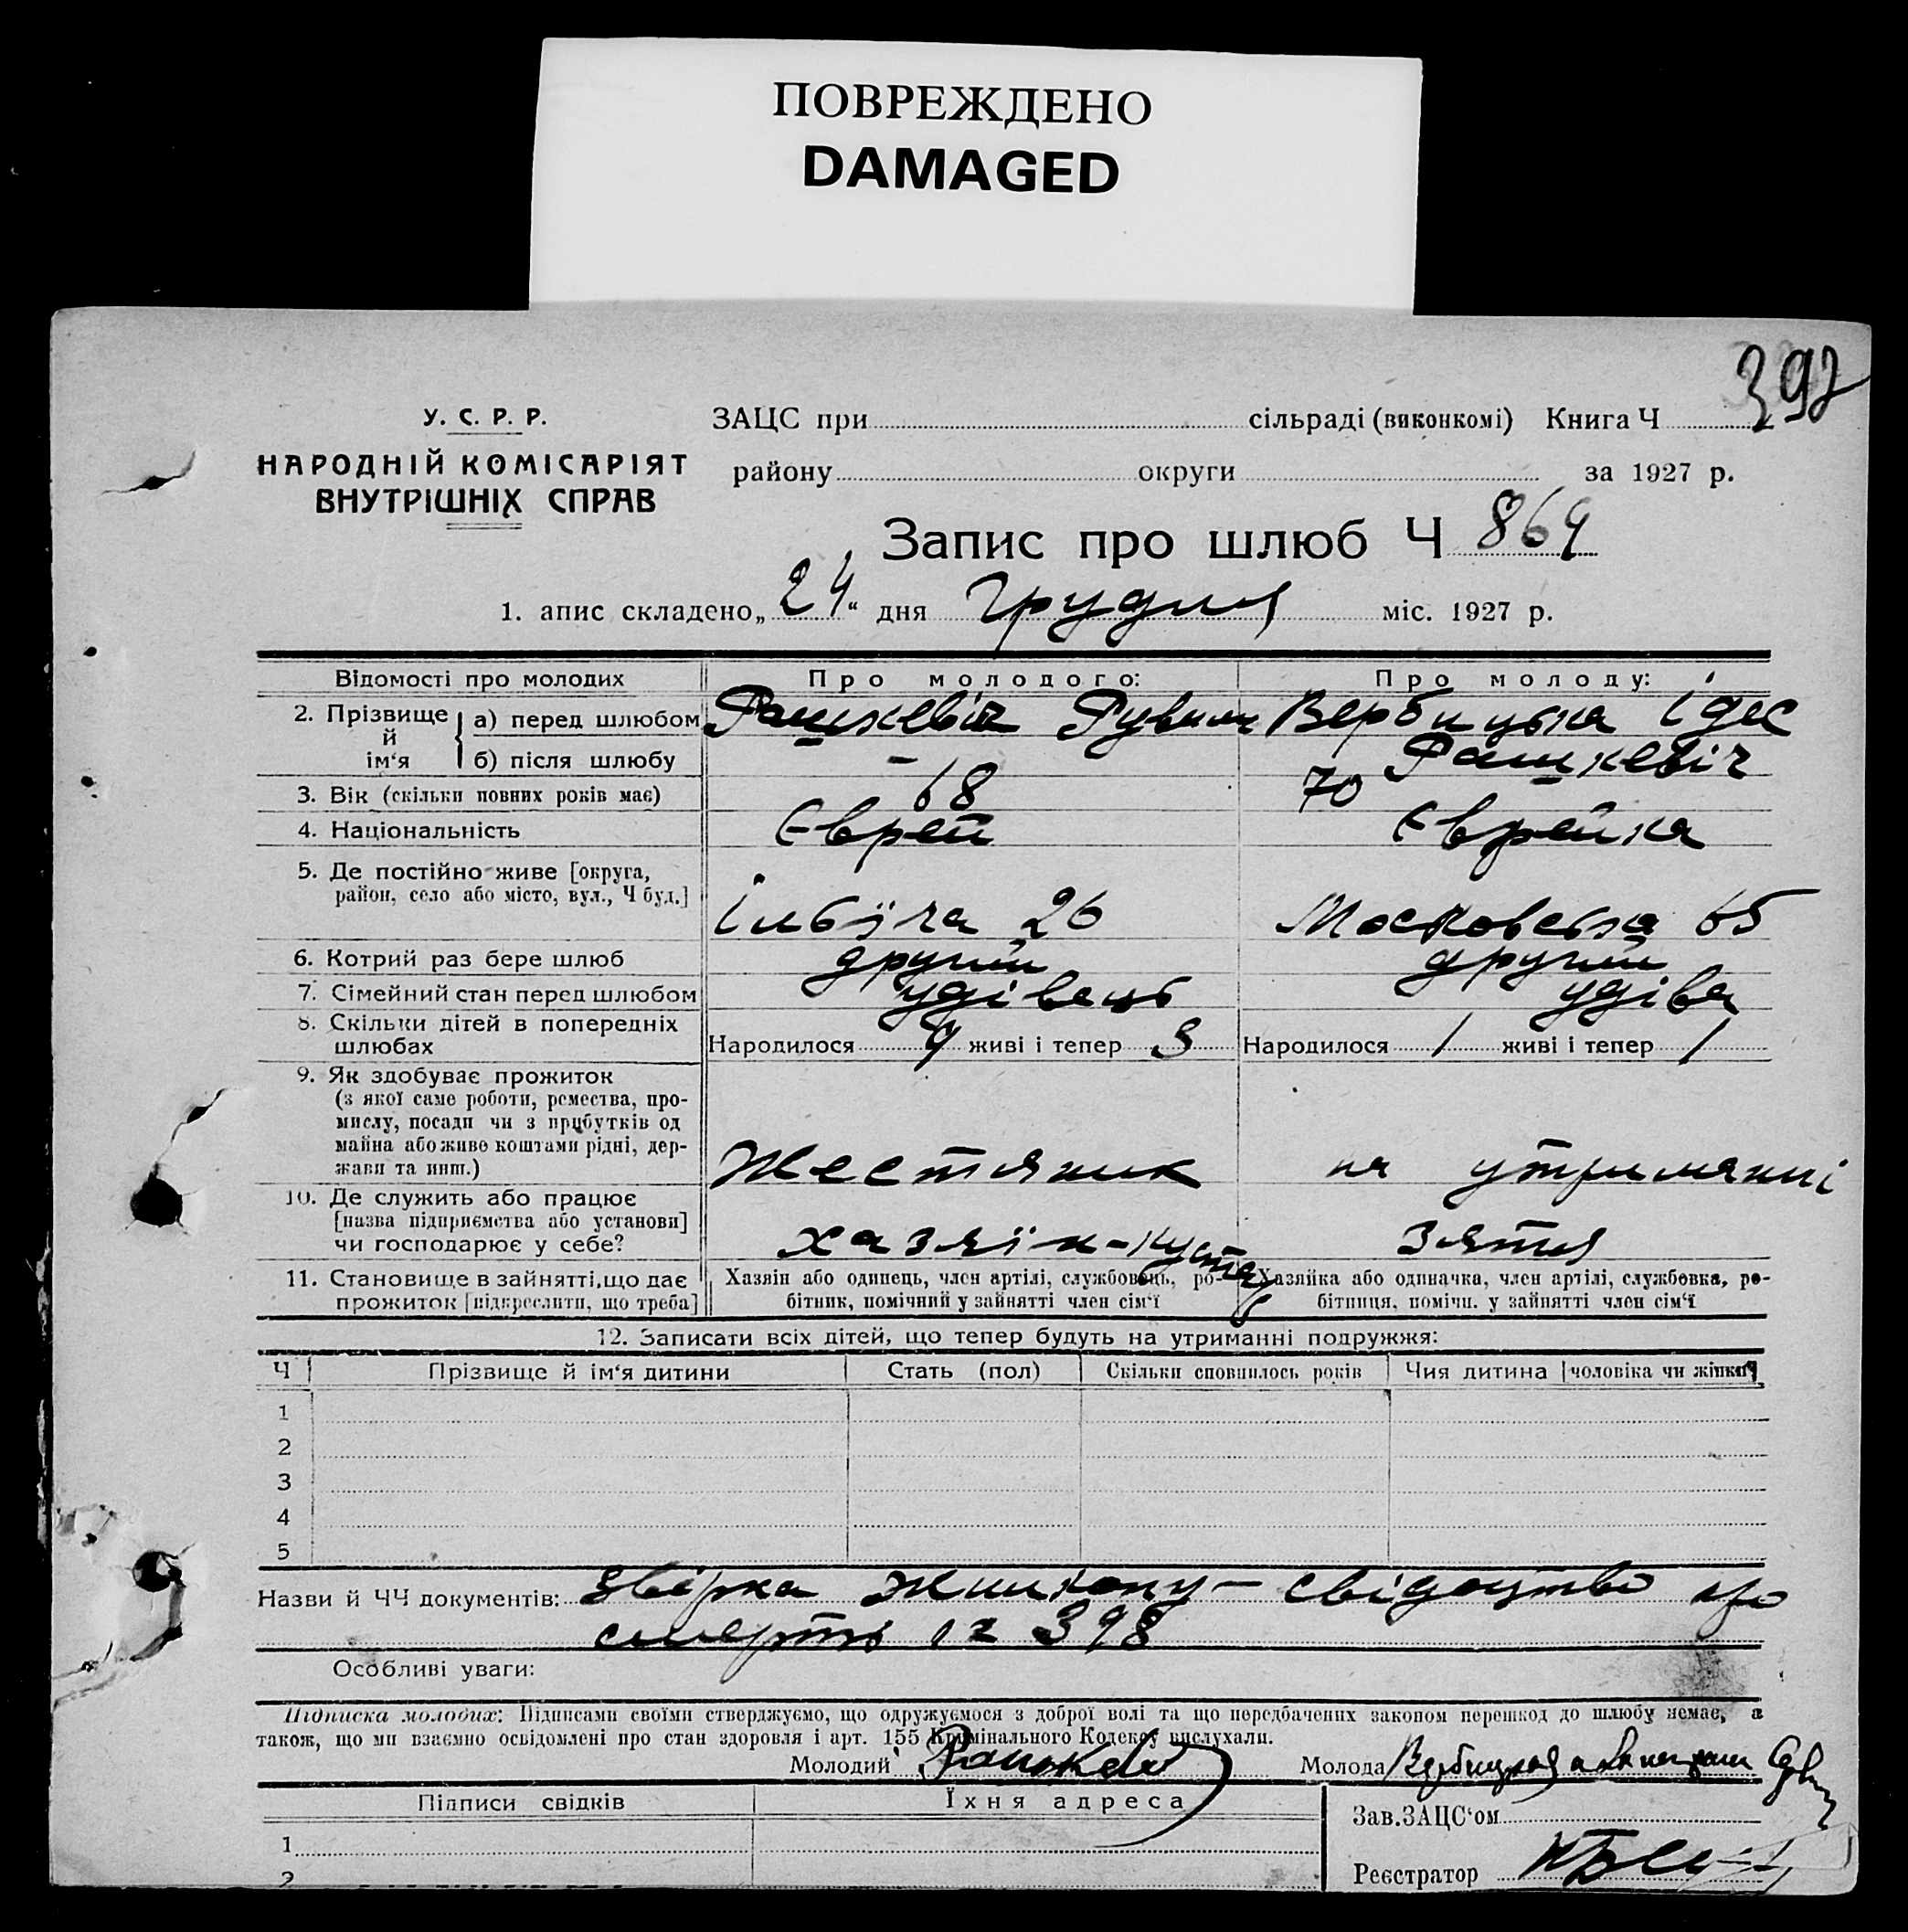 ПОВРЕЖДЕНО
DAMAGED
392
У. С. Р. Р.
НАРОДНІЙ КОМІСАРІЯТ
ВНУТРІШНІХ СПРАВ
ЗАЦС при сільраді (виконкомі) Книга Ч
району округи за 1927 р.
Запис про шлюб Ч 869
1. апис складено „24“ дня Грудня міс. 1927 р.
Відомості про молодих Про молодого: Про молоду:
2. Прізвище й ім‘я а) перед шлюбом Рашкевіч Рувим Вербицька Ідес
б) після шлюбу – Рашкевіч
3. Вік (скільки повних років має) 68 70
4. Національність Єврей Єврейка
5. Де постійно живе [округа,
район, село або місто, вул., Ч буд.] Ільїча 26 Московська 65
6. Котрий раз бере шлюб другий другий
7. Сімейний стан перед шлюбом удівець удіва
8. Скільки дітей в попередніх
шлюбах Народилося 9 живі і тепер 3 Народилося 1 живі і тепер 1
9. Як здобуває прожиток
(з якої саме роботи, ремества, про-
мислу, посади чи з прибутків од
майна або живе коштами рідні, дер-
жави та инш.) Жестяник на утриманні
10. Де служить або працює
[назва підприємства або установи]
чи господарює у себе? хазяїн-кустар зятя
11. Становище в зайнятті, що дає
прожиток [підкреслити, що треба]
Хазяїн або одинець, член артілі, службовець, ро-
бітник, помічний у зайнятті член сім‘ї
Хазяйка або одиначка, член артілі, службовка, ро-
бітниця, помічн. у зайнятті член сім‘ї
12. Записати всіх дітей, що тепер будуть на утриманні подружжя:
Ч Прізвище й ім‘я дитини Стать (пол) Скільки сповнилось років Чия дитина [чоловіка чи жінки]
1
2
3
4
5
Назви й ЧЧ документів: Звірка жилкопу – свідоцтво про
смерть 12 398
Особливі уваги:
Підписка молодих: Підписами своїми стверджуємо, що одружуємося з доброї волі та що передбачених законом перешкод до шлюбу немає, а
також, що ми взаємно освідомлені про стан здоровля і арт. 155 Кримінального Кодексу вислухали.
Молодий Рашкевич Молода Вербицкая
Підписи свідків Їхня адреса
Зав. ЗАЦС‘ом
1
Реєстратор
2